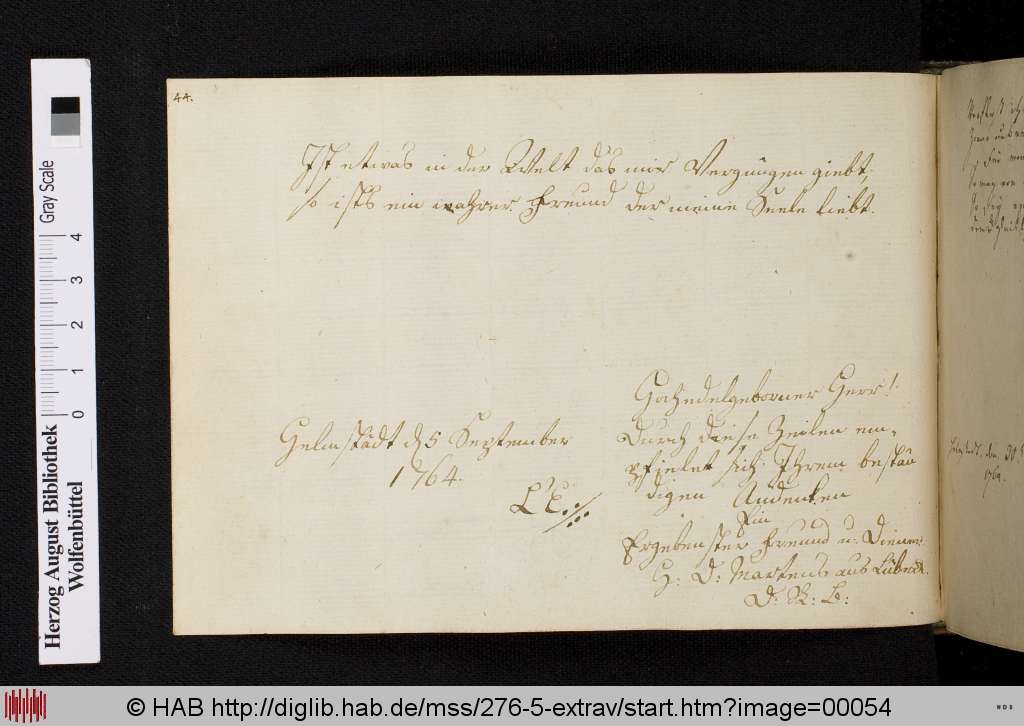 44.
Ist etwas in der Welt das mir Vergnügen giebt,
so ists ein wahrer Freund der meine Seele liebt.
Helmstädt d 5 September
1764.
Hochedelgeborner Herr!
Durch diese Zeilen em-
pfielet sich Ihrem bestän
digen Andenken
Ein
Ergebenster Freund u: Diener
H: D: Martens aus Lübeck.
D: R: B:
Herzog August Bibliothek
Wolfenbüttel
Gray Scale
0 1 2 3 4
© HAB http://diglib.hab.de/mss/276-5-extrav/start.htm?image=00054